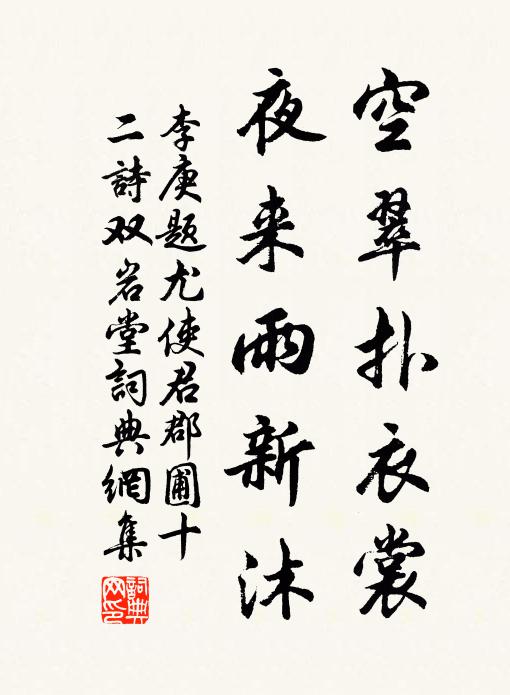 空翠扑衣裳
夜来雨新沐
李庚题尤使君郡圃十
二詩双岩堂詞典網集
詞典网印